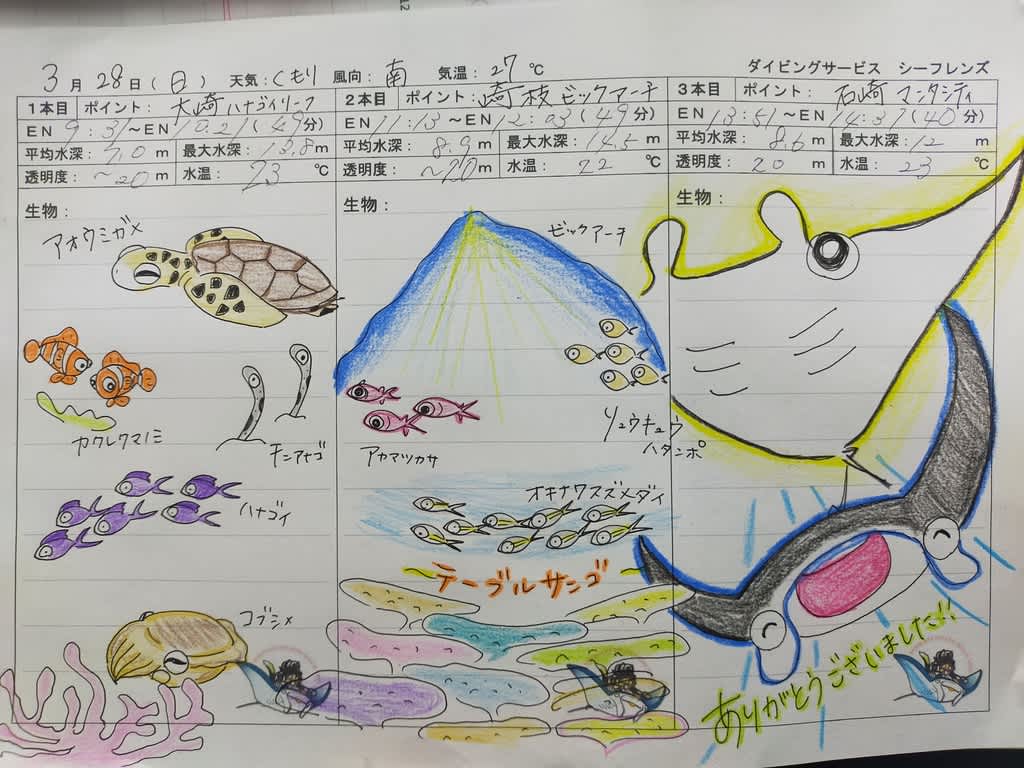 3月28日(日) 天気:くもり 風向:南 気温:27℃
ダイビングサービス シーフレンズ
1本目 ポイント: 大崎ハナゴイリーフ
EN 9:31~EN 10:21(49分)
平均水深:7.0m 最大水深:13.8m
透明度:~20m 水温:23℃
生物:
アオウミガメ
カクレクマノミ
チンアナゴ
ハナゴイ
コブシメ
2本目 ポイント: 崎枝ビックアーチ
EN 11:13~EN 12:03(49分)
平均水深:8.9m 最大水深:14.5m
透明度:~20m 水温:22℃
生物:
ビックアーチ
リュウキュウ
ハタンポ
アカマツカサ
オキナワスズメダイ
テーブルサンゴ
3本目 ポイント: 石崎マンタシティ
EN 13:51~EN 14:37(40分)
平均水深:8.6m 最大水深:12m
透明度:20m 水温:23℃
生物:
ありがとうございました!!